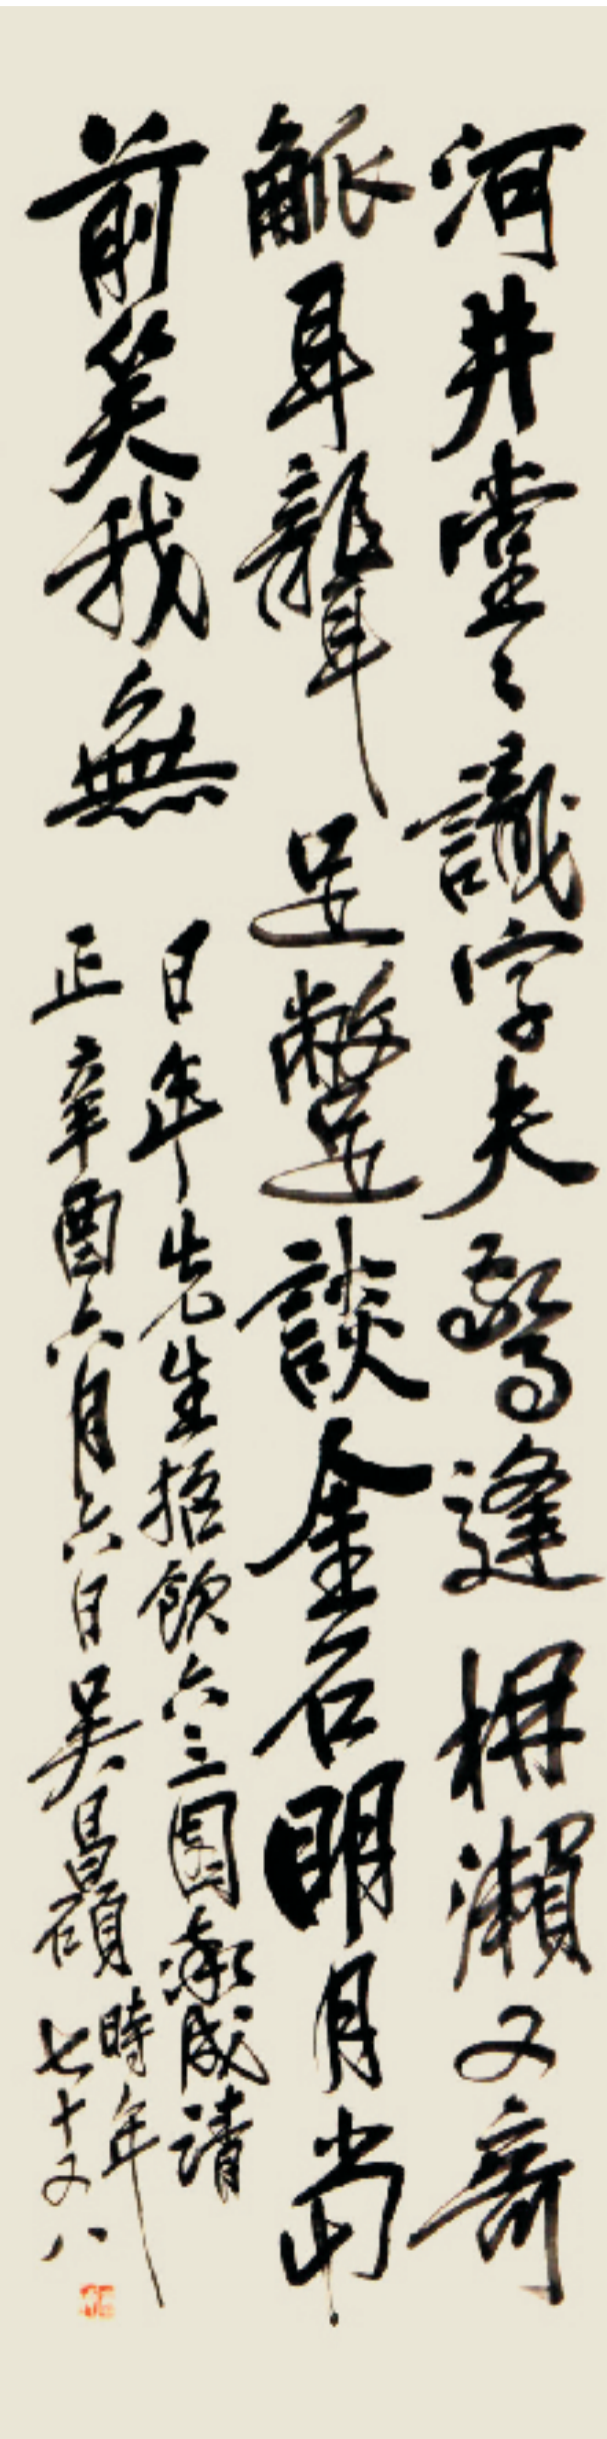 河井堂〻識字夫驚逢枏瀨又奇
觚耳聾足蹩談金石明月當
前笑我無
日年先生招飲六三園成請
正辛酉六月六日吳昌碩時年
七十又八